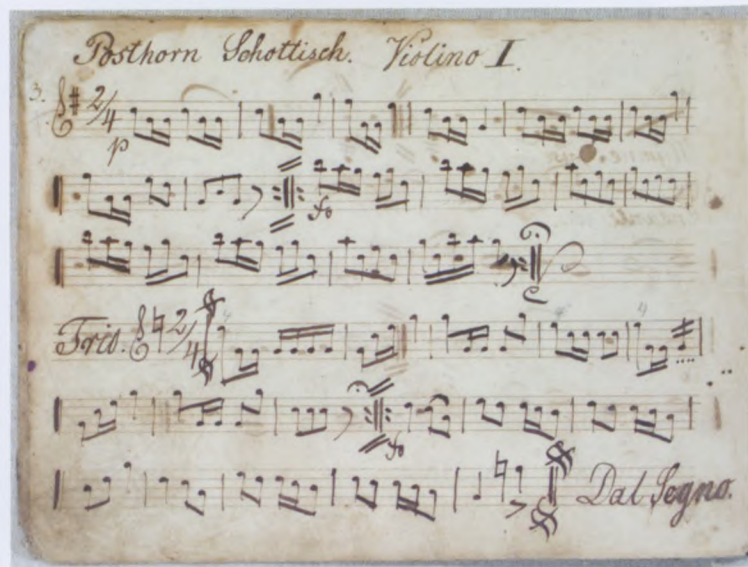 Posthorn Schottisch. Violino I.
3. 2/4
p
fo
Trio. 2/4
fo
Dal Segno.